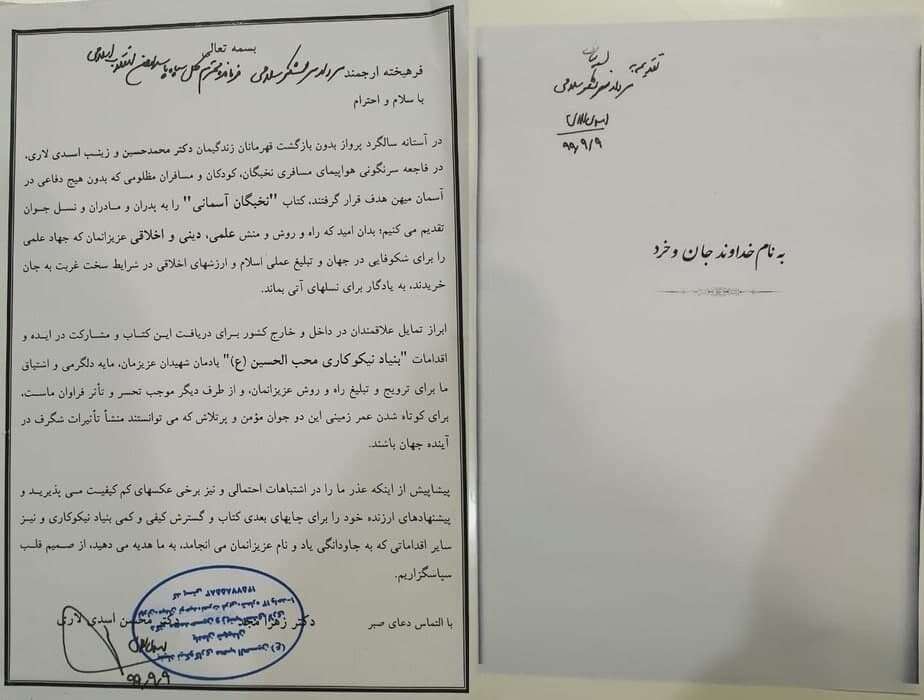 بسمه تعالی
فرهیخته ارجمند سردار سرلشکر سلامی فرمانده محترم کل سپاه پاسداران انقلاب اسلامی
با سلام و احترام
در آستانه سالگرد پرواز بدون بازگشت قهرمانان زندگیمان دکتر محمدحسین و زینب اسدی لاری،
در فاجعه سرنگونی هواپیمای مسافری نخبگان، کودکان و مسافران مظلومی که بدون هیچ دفاعی در
آسمان میهن هدف قرار گرفتند، کتاب "نخبگان آسمانی" را به پدران و مادران و نسل جوان
تقدیم می کنیم؛ بدان امید که راه و روش و منش علمی، دینی و اخلاقی عزیزانمان که جهاد علمی
را برای شکوفایی در جهان و تبلیغ عملی اسلام و ارزشهای اخلاقی در شرایط سخت غربت به جان
خریدند، به یادگار برای نسلهای آتی بماند.
ابراز تمایل علاقمندان در داخل و خارج کشور برای دریافت این کتاب و مشارکت در ایده و
اقدامات "بنیاد نیکوکاری محب الحسین (ع)" یادمان شهیدان عزیزمان، مایه دلگرمی و اشتیاق
ما برای ترویج و تبلیغ راه و روش عزیزانمان، و از طرف دیگر موجب تحسر و تأثر فراوان ماست،
برای کوتاه شدن عمر زمینی این دو جوان مؤمن و پرتلاش که می توانستند منشأ تأثیرات شگرف در
آینده جهان باشند.
پیشاپیش از اینکه عذر ما را در اشتباهات احتمالی و نیز برخی عکسهای کم کیفیت می پذیرید و
پیشنهادهای ارزنده خود را برای چاپهای بعدی کتاب و گسترش کیفی و کمی بنیاد نیکوکاری و نیز
سایر اقداماتی که به جاودانگی یاد و نام عزیزانمان می انجامد، به ما هدیه می دهید، از صمیم قلب
سپاسگزاریم.
با التماس دعای صبر دکتر زهرا مجد دکتر محسن اسدی لاری
۹۹/۹/۹
تقدیم به
سردار سرلشکر سلامی
اسدی لاری
۹۹/۹/۹
به نام خداوند جان و خرد